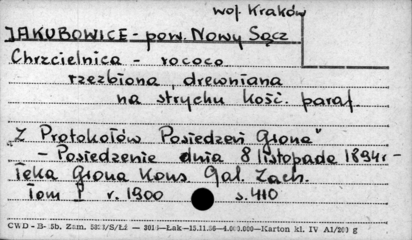 woj. Kraków
JAKUBOWICE - pow. Nowy Sącz
Chrzcielnica - rococo
rzezbiona drewniana
na strychu kość. paraf
"Z Protokołów Posiedzeń Grona"
- Posiedzenie dnia 8 listopada 1894 r -
Teka Grona Kons. Gal. Zach.
Tom I r. 1900 s. 410
CWD - B- 5b. Zam. - Łak - 15.11.56 - 4.000.000 - Karton kl. IV A1/200 g